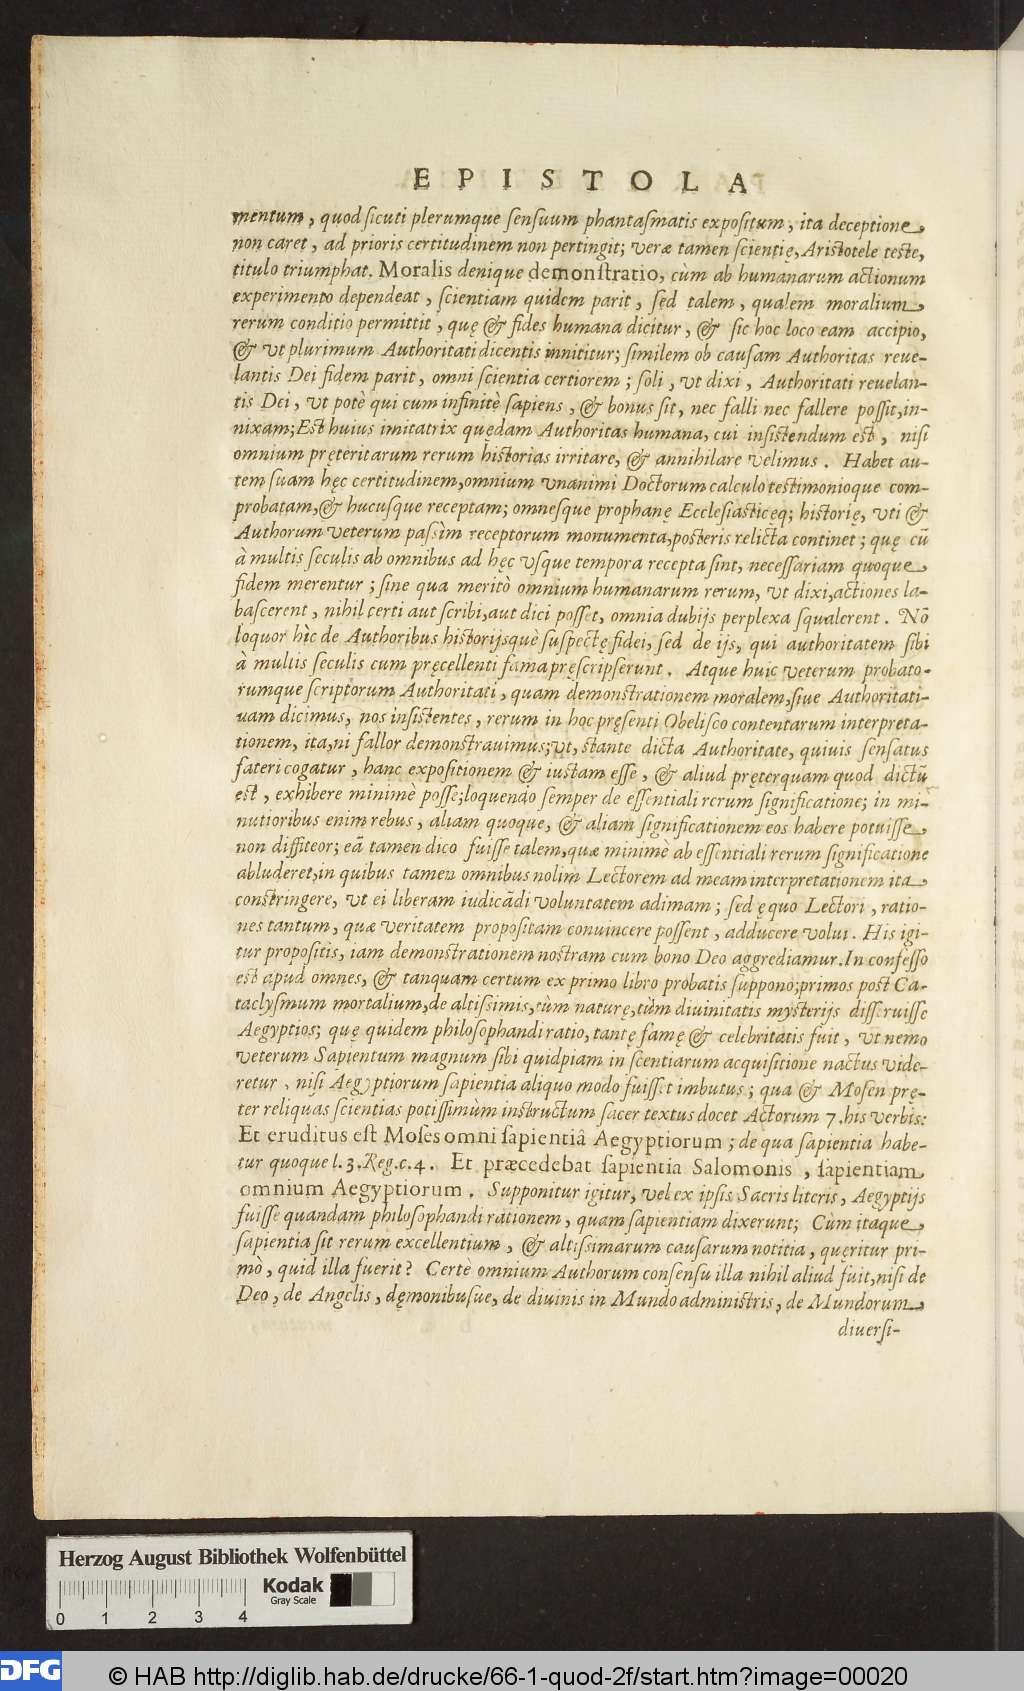 EPISTOLA
mentum, quod sicuti plerumque sensuum phantasmatis expositum, ita deceptione
non caret, ad prioris certitudinem non pertingit; veræ tamen scientię, Aristotele teste,
titulo triumphat. Moralis denique demonstratio, cùm ab humanarum actionum
experimento dependeat, scientiam quidem parit, sed talem, qualem moralium
rerum conditio permittit, quę & fides humana dicitur, & sic hoc loco eam accipio,
& vt plurimum Authoritati dicentis innititur; similem ob causam Authoritas reue-
lantis Dei fidem parit, omni scientia certiorem; soli, vt dixi, Authoritati reuelan-
tis Dei, vt potè qui cum infinitè sapiens, & bonus sit, nec falli nec fallere possit, in-
nixam; Est huius imitatrix quędam Authoritas humana, cui insistendum est, nisi
omnium pręteritarum rerum historias irritare, & annihilare velimus. Habet au-
tem suam hęc certitudinem, omnium vnanimi Doctorum calculo testimonioque com-
probatam, & hucusque receptam; omnesque prophanę Ecclesiasticęq; historię, vti &
Authorum veterum passìm receptorum monumenta, posteris relicta continet; quę cũ
à multis seculis ab omnibus ad hęc vsque tempora recepta sint, necessariam quoque
fidem merentur; sine qua meritò omnium humanarum rerum, vt dixi, actiones la-
bascerent, nihil certi aut scribi, aut dici posset, omnia dubijs perplexa squalerent. Nõ
loquor hìc de Authoribus historijsquè suspectę fidei, sed de ijs, qui authoritatem sibi
à multis seculis cum pręcellenti fama pręscripserunt. Atque huic veterum probato-
rumque scriptorum Authoritati, quam demonstrationem moralem, siue Authoritati-
uam dicimus, nos insistentes, rerum in hoc pręsenti Obelisco contentarum interpreta-
tionem, ita, ni fallor demonstrauimus; vt, stante dicta Authoritate, quiuis sensatus
fateri cogatur, hanc expositionem & iustam esse, & aliud pręterquam quod dictũ
est, exhibere minimè posse; loquendo semper de essentiali rerum significatione; in mi-
nutioribus enim rebus, aliam quoque, & aliam significationem eos habere potuisse
non diffiteor; eã tamen dico fuisse talem, quæ minimè ab essentiali rerum significatione
abluderet, in quibus tamen omnibus nolim Lectorem ad meam interpretationem ita
constringere, vt ei liberam iudicãdi voluntatem adimam; sed ęquo Lectori, ratio-
nes tantum, quæ veritatem propositam conuincere possent, adducere volui. His igi-
tur propositis, iam demonstrationem nostram cum bono Deo aggrediamur. In confesso
est apud omnes, & tanquam certum ex primo libro probatis suppono; primos post Ca-
taclysmum mortalium, de altissimis, tùm naturę, tùm diuinitatis mysterijs disseruisse
Aegyptios; quę quidem philosophandi ratio, tantę famę & celebritatis fuit, vt nemo
veterum Sapientum magnum sibi quidpiam in scentiarum acquisitione nactus vide-
retur, nisi Aegyptiorum sapientia aliquo modo fuisset imbutus; qua & Mosen prę-
ter reliquas scientias potissimùm instructum sacer textus docet Actorum 7. his verbis:
Et eruditus est Moses omni sapientiâ Aegyptiorum; de qua sapientia habe-
tur quoque l. 3. Reg. c. 4. Et præcedebat sapientia Salomonis, sapientiam
omnium Aegyptiorum. Supponitur igitur, vel ex ipsis Sacris literis, Aegyptijs
fuisse quandam philosophandi rationem, quam sapientiam dixerunt; Cùm itaque
sapientia sit rerum excellentium, & altissimarum causarum notitia, quęritur pri-
mò, quid illa fuerit? Certè omnium Authorum consensu illa nihil aliud fuit, nisi de
Deo, de Angelis, dęmonibusue, de diuinis in Mundo administris, de Mundorum
diuersi-
Herzog August Bibliothek Wolfenbüttel
Kodak
Gray Scale
0 1 2 3 4
DFG
© HAB http://diglib.hab.de/drucke/66-1-quod-2f/start.htm?image=00020